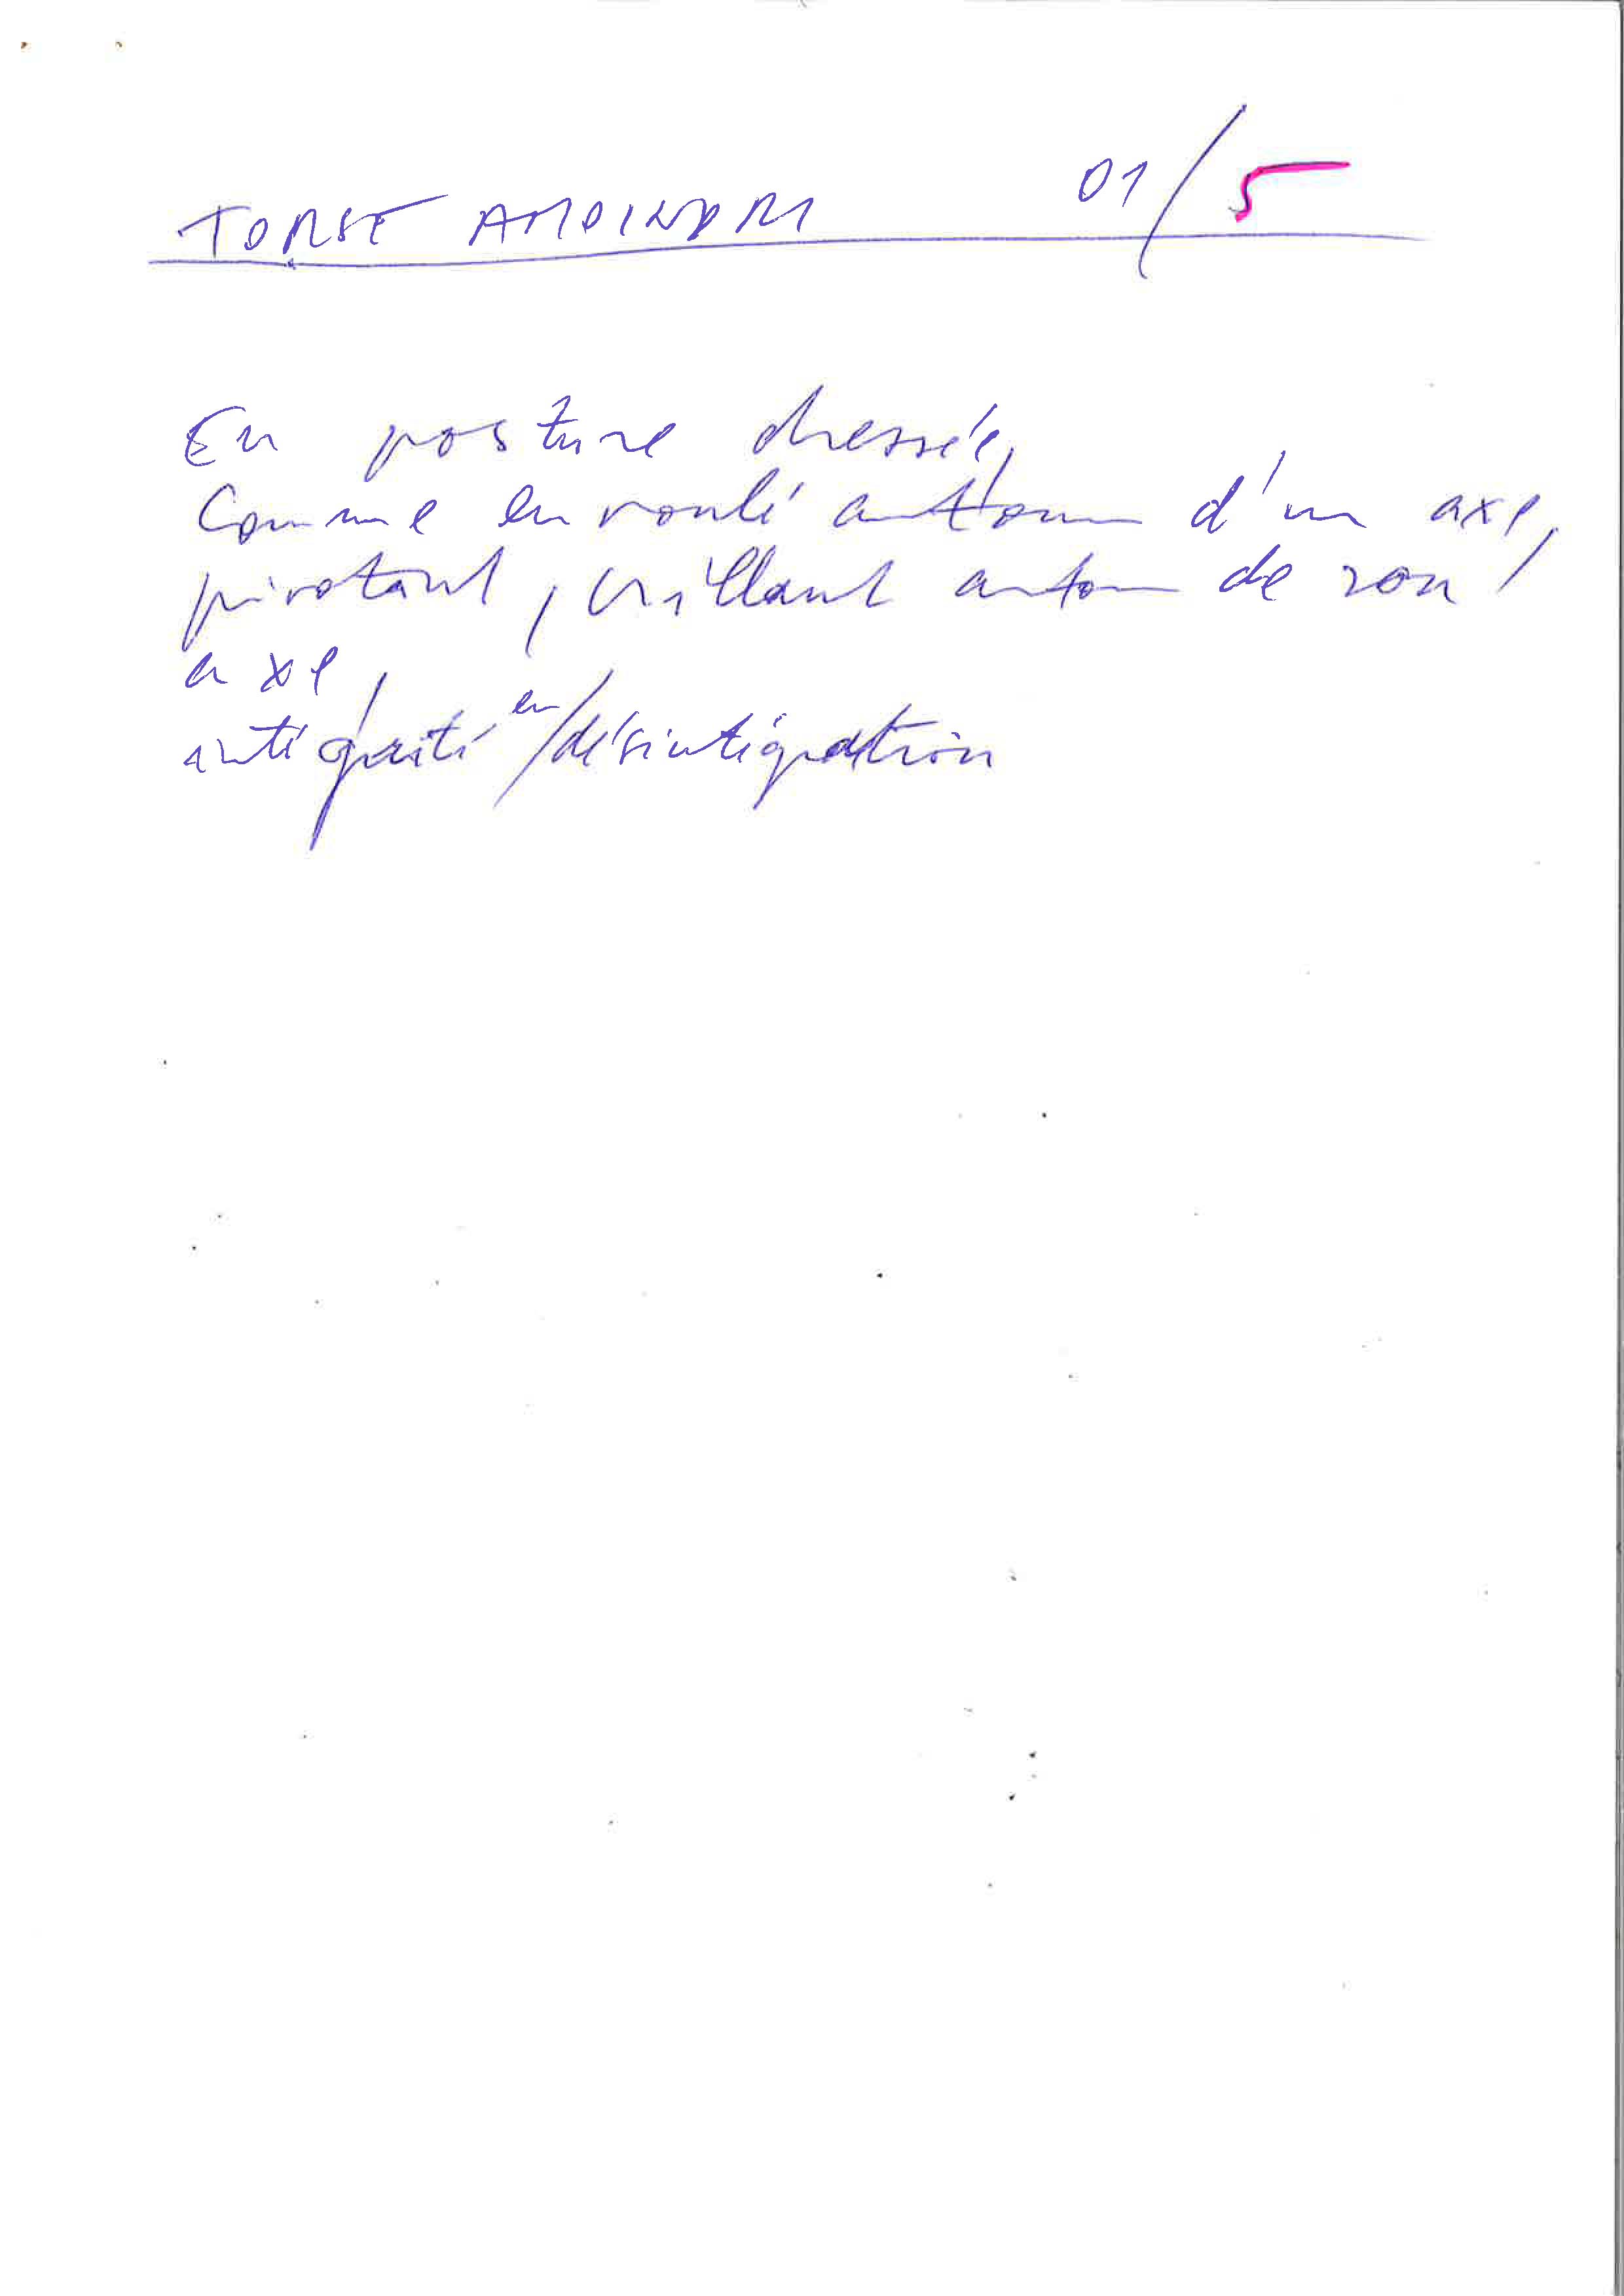 TORSE AMOINDRI 01/5
En posture dressée,
Comme enroulé autour d'un axe,
pivotant, vrillant autour de son
axe,
intégrité en/désintégration